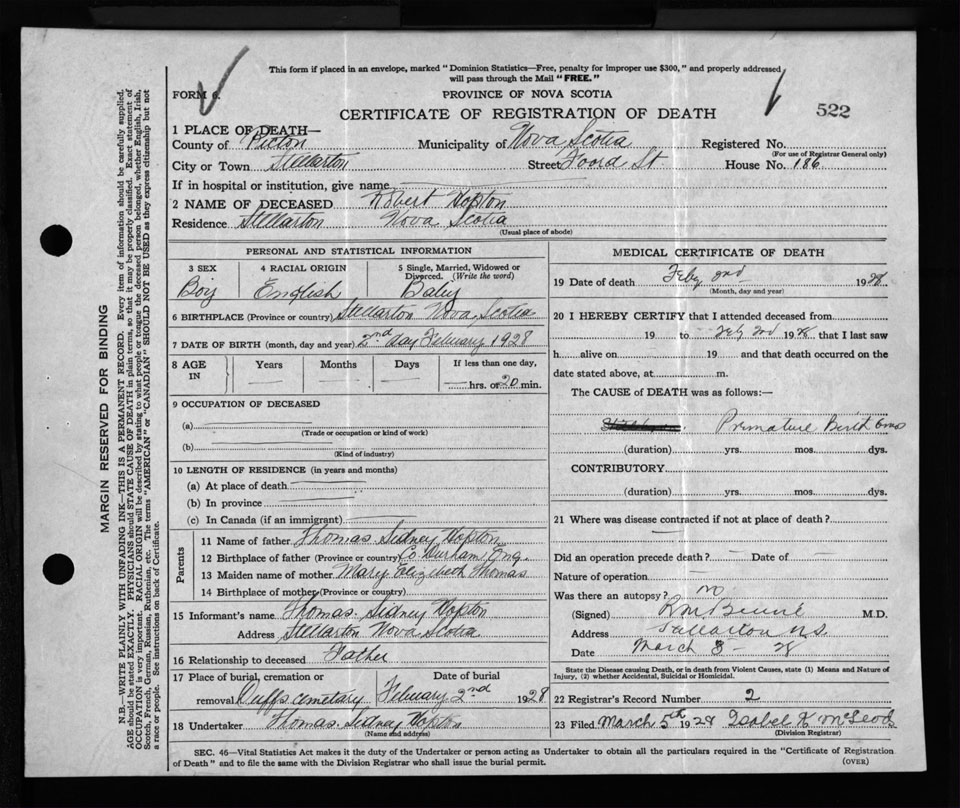 This form if placed in an envelope, marked "Dominion Statistics—Free, penalty for improper use $300," and properly addressed
will pass through the Mail "FREE."
FORM 6.
PROVINCE OF NOVA SCOTIA
CERTIFICATE OF REGISTRATION OF DEATH
522
1 PLACE OF DEATH—
County of Pictou Municipality of Nova Scotia Registered No.
(For use of Registrar General only)
City or Town Stellarton Street Foord St House No. 186
If in hospital or institution, give name
2 NAME OF DECEASED Robert Hopton
Residence Stellarton Nova Scotia
(Usual place of abode)
PERSONAL AND STATISTICAL INFORMATION
3 SEX 4 RACIAL ORIGIN 5 Single, Married, Widowed or Divorced. (Write the word)
Boy English Baby
6 BIRTHPLACE (Province or country) Stellarton Nova Scotia
7 DATE OF BIRTH (month, day and year) 2nd day February 1928
8 AGE IN Years Months Days If less than one day,
hrs. or 20 min.
9 OCCUPATION OF DECEASED
(a)
(Trade or occupation or kind of work)
(b)
(Kind of industry)
10 LENGTH OF RESIDENCE (in years and months)
(a) At place of death
(b) In province
(c) In Canada (if an immigrant)
Parents
11 Name of father Thomas Sidney Hopton
12 Birthplace of father (Province or country) Co Durham Eng.
13 Maiden name of mother Mary Elizebeth Thomas
14 Birthplace of mother (Province or country)
15 Informant's name Thomas Sidney Hopton
Address Stellarton Nova Scotia
16 Relationship to deceased Father
17 Place of burial, cremation or removal Duffs cemetary Date of burial February 2nd 1928
18 Undertaker Thomas Sidney Hopton
(Name and address)
MEDICAL CERTIFICATE OF DEATH
19 Date of death Feby 2nd 1928
(Month, day and year)
20 I HEREBY CERTIFY that I attended deceased from
19 to Feby 2nd 1928 that I last saw
h alive on 19 and that death occurred on the
date stated above, at m.
The CAUSE of DEATH was as follows:—
Premature Birth 6mos
(duration) yrs. mos. dys.
CONTRIBUTORY
(duration) yrs. mos. dys.
21 Where was disease contracted if not at place of death?
Did an operation precede death? Date of
Nature of operation
Was there an autopsy? no
(Signed) M.D.
Address Stellarton N.S.
Date March 3 - 28
State the Disease causing Death, or in death from Violent Causes, state (1) Means and Nature of
Injury, (2) whether Accidental, Suicidal or Homicidal.
22 Registrar's Record Number 2
23 Filed March 5th 1928 Isabel K McLeod
(Division Registrar)
SEC. 46—Vital Statistics Act makes it the duty of the Undertaker or person acting as Undertaker to obtain all the particulars required in the "Certificate of Registration
of Death" and to file the same with the Division Registrar who shall issue the burial permit.
(OVER)
MARGIN RESERVED FOR BINDING
N.B.—WRITE PLAINLY WITH UNFADING INK—THIS IS A PERMANENT RECORD. Every item of information should be carefully supplied.
AGE should be stated EXACTLY. PHYSICIANS should STATE CAUSE OF DEATH in plain terms, so that it may be properly classified. Exact statement of
OCCUPATION is very important. RACIAL ORIGIN will be described by stating to what people or tongue the deceased person belonged, whether English, Irish,
Scotch, French, German, Russian, Ruthenian, etc. The terms "AMERICAN" or "CANADIAN" SHOULD NOT BE USED as they express citizenship but not
a race or people. See instructions on back of Certificate.